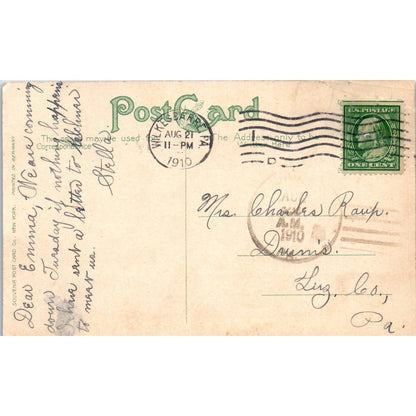 Post Card
This side may be used for
Correspondence
The Address only to be
WILKES-BARRE, PA
AUG 21
11-PM
1910
U.S. POSTAGE
ONE CENT
SOUVENIR POST CARD CO. NEW YORK PRINTED IN GERMANY
Dear Emma, We are coming
down Tuesday if nothing happens
I have sent a letter to
to meet us.
Stella
A.M.
1910
Mrs. Charles Raup.
Drums.
Luz. Co.,
Pa.